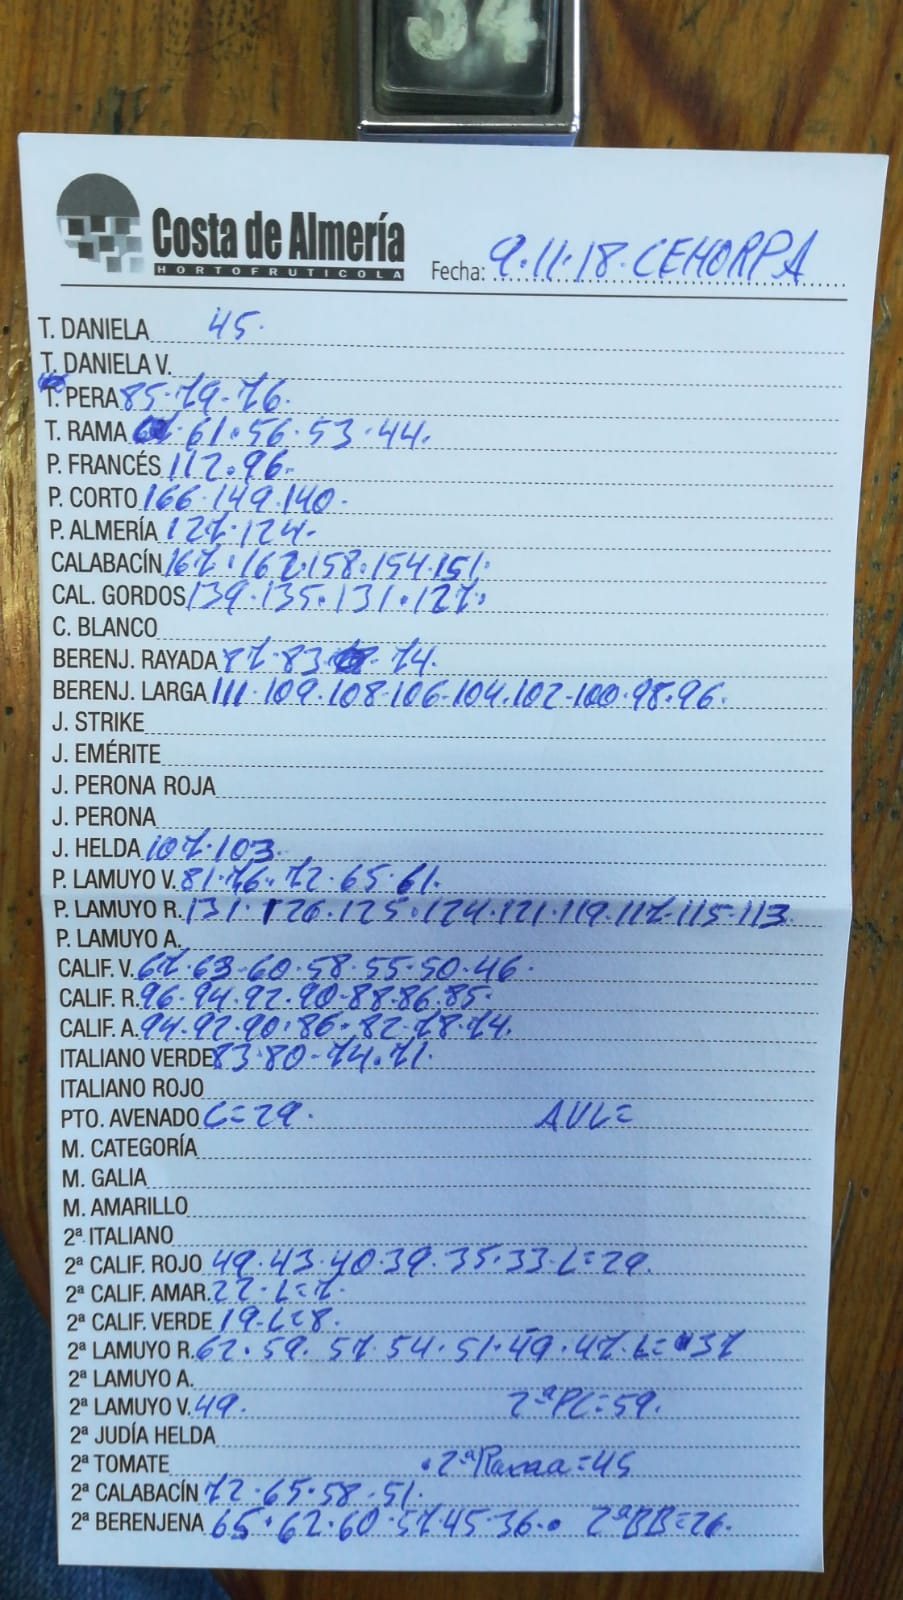 34
Costa de Almería
HORTOFRUTICOLA
Fecha: 9.11.18. CEHORPA
T. DANIELA 45.
T. DANIELA V.
T. PERA 85.79-76.
T. RAMA 61.56.53.44.
P. FRANCÉS 112.96.
P. CORTO 166.149.140.
P. ALMERÍA 127.124.
CALABACÍN 167.162.158.154.151.
CAL. GORDOS 139.135.131.127.
C. BLANCO
BERENJ. RAYADA 87.83 74.
BERENJ. LARGA 111.109.108.106.104.102.100.98.96.
J. STRIKE
J. EMÉRITE
J. PERONA ROJA
J. PERONA
J. HELDA 107.103.
P. LAMUYO V. 81.76.72.65.61.
P. LAMUYO R. 131.126.125.124.121.119.117.115.113.
P. LAMUYO A.
CALIF. V. 67.63.60.58.55.50.46.
CALIF. R. 96.94.92.90.88.86.85.
CALIF. A. 94.92.90.86.82.78.74.
ITALIANO VERDE 83.80.74.71.
ITALIANO ROJO
PTO. AVENADO C=29. AVL=
M. CATEGORÍA
M. GALIA
M. AMARILLO
2ª ITALIANO
2ª CALIF. ROJO 49.43.40.39.35.33.L=29.
2ª CALIF. AMAR. 22.L=7.
2ª CALIF. VERDE 19.L=8.
2ª LAMUYO R. 62.59.57.54.51.49.47.L=37
2ª LAMUYO A.
2ª LAMUYO V. 49. 2ªPC=59.
2ª JUDÍA HELDA
2ª TOMATE .2ªRama=45
2ª CALABACÍN 72.65.58.51.
2ª BERENJENA 65.62.60.57.45.36. 2ªBB=26.